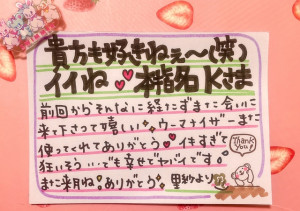 貴方も好きねぇ〜(笑)
イイね 本指名Kさま
前回からそんなに経たずまた会いに
来て下さって嬉しい ウーマナイザーまた
使ってくれてありがとう イキすぎて
狂いそう…でも幸せでヤバイです。
また来月ね! ありがとう 里紗より
Thank you!